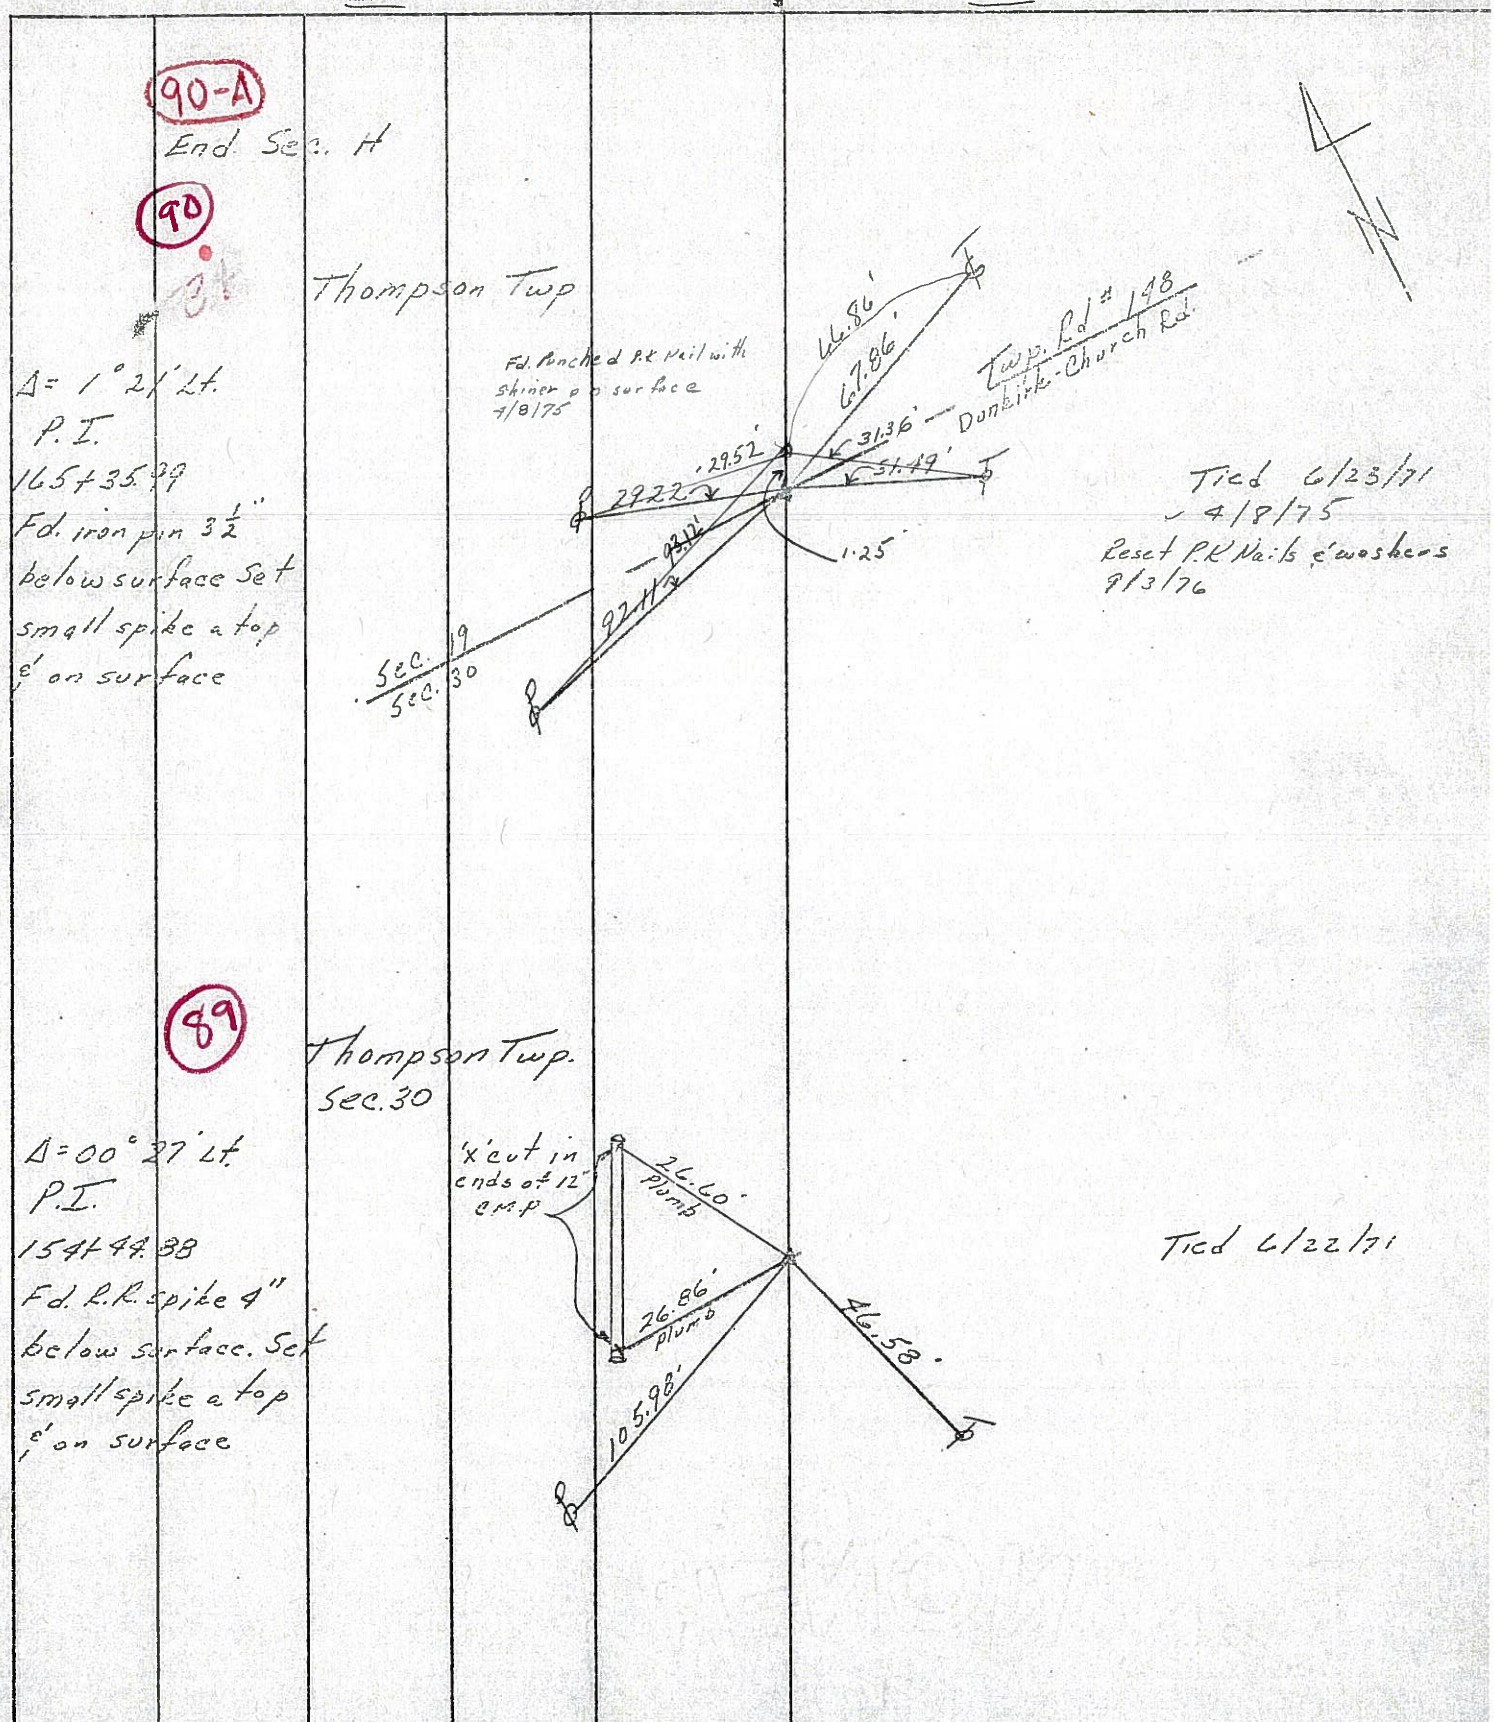 90-A
End. Sec. H
90
Thompson Twp
Δ= 1° 21' Lt.
P.I.
165+35.99
Fd. iron pin 3 1/2"
below surface Set
small spike a top
& on surface
Fd. Punched P.K Nail with
shiner on surface
4/8/75
66.86'
67.86'
Twp. Rd # 148
Dunkirk-Church Rd.
29.52'
31.36'
29.22
51.49'
93.12'
92.11'
1.25'
Sec. 19
Sec. 30
N
Tied 6/23/71
4/8/75
Reset P.K Nails & washers
9/3/76
89
Thompson Twp.
Sec. 30
Δ=00° 27' Lt.
P.I.
154+44.88
Fd. R.R. spike 4"
below surface. Set
small spike a top
& on surface
'x' cut in
ends of 12"
C.M.P
26.60'
Plumb
26.86'
Plumb
105.98'
46.58'
Tied 6/22/71